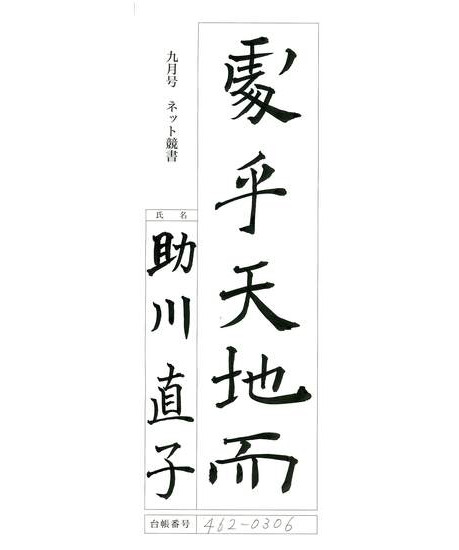 處乎天地而
九月号 ネット競書
氏名
助川直子
台帳番号 462-0306